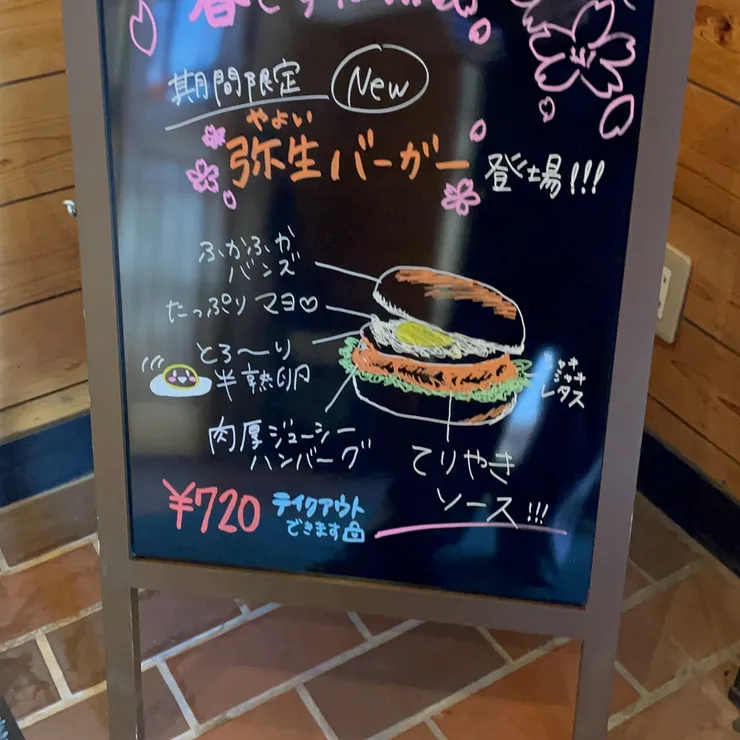 期間限定 New
やよい
弥生バーガー 登場!!!
ふかふか
バンズ
たっぷりマヨ♡
とろ〜り
半熟卵
肉厚ジューシー
ハンバーグ
シャキ
シャキ
レタス
てりやき
ソース!!!
¥720
テイクアウト
できます